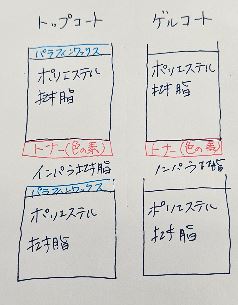 トップコート
パラフィンワックス
ポリエステル
樹脂
トナー(色の素)
インパラ樹脂
パラフィンワックス
ポリエステル
樹脂
ゲルコート
ポリエステル
樹脂
トナー(色の素)
ノンパラ樹脂
ポリエステル
樹脂